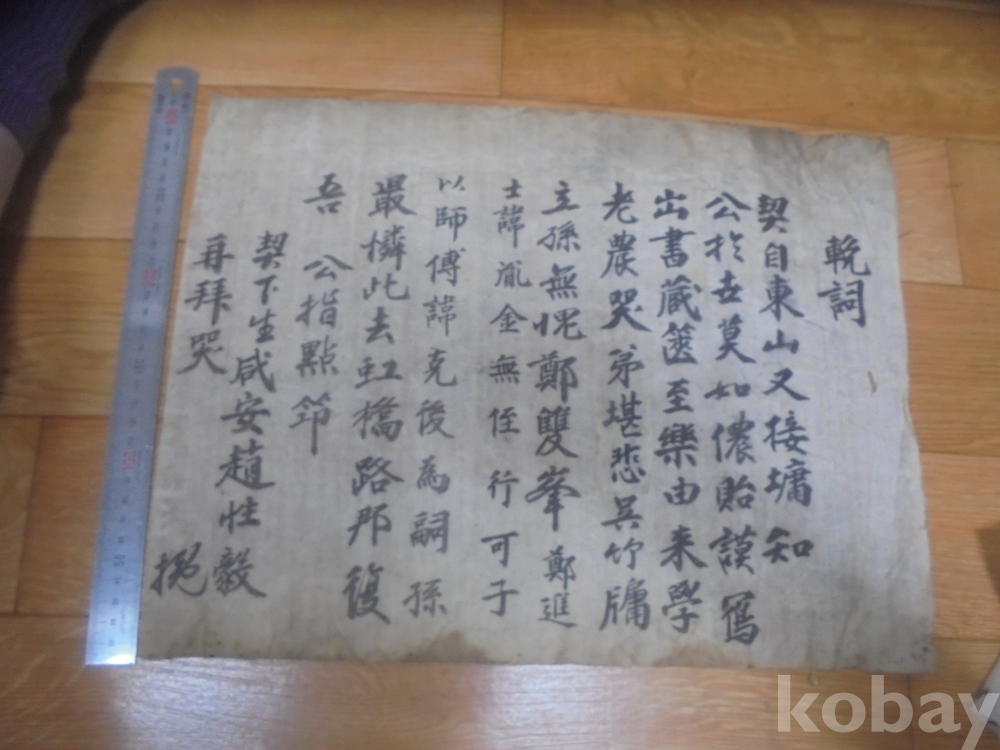 輓詞
契自東山又接墉知
公於世莫如儂貽謨寫
出書蔵篋至樂由来學
老農哭弟堪悲吳竹牗
立孫無愧鄭雙峯鄭進
士諱胤金無侄行可子
以師傅諱克後為嗣孫
最憐此去虹橋路那復
吾 公指點筇
契下生咸安趙性毅
再拜哭 挽
kobay